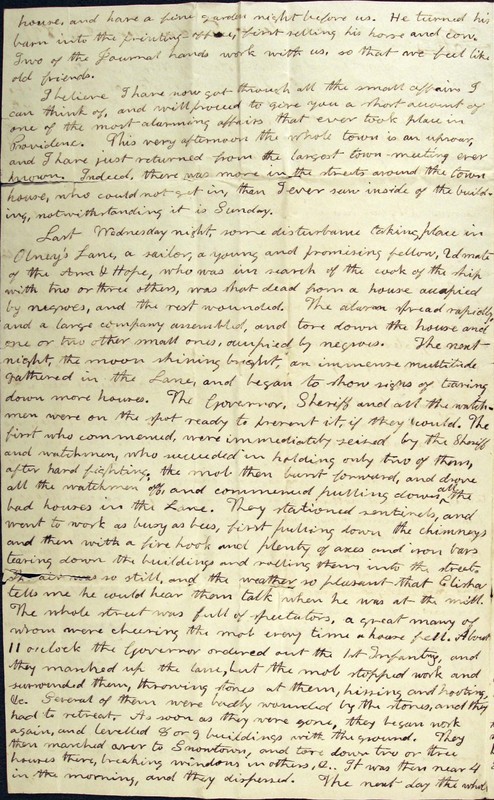 house, and have a fine garden right before us. He turned his
barn into the printing office, first selling his horse and cow.
Two of the Journal hands work with us, so that we feel like
old friends.
I believe I have now got through all the small affairs I
can think of, and will proceed to give you a short account of
one of the most alarming affairs that ever took place in
Providence. This very afternoon the whole town is an uproar,
and I have just returned from the largest town-meeting ever
known. Indeed, there was more in the streets around the Town
house, who could not get in, then I ever saw inside of the build-
ing, notwithstanding it is Sunday.
Last Wednesday night, some disturbance taking place in
Olney's Lane, a sailor, a young and promising fellow, 2d mate
of the Ann & Hope, who was in search of the cook of the ship
with two or three others, was shot dead from a house occupied
by negroes, and the rest wounded. The alarm spread rapidly
and a large company assembled, and tore down the house and
one or two other small ones, occupied by negroes. The next
night, the moon shining bright, an immense multitude
gathered in the Lane, and began to show signs of tearing
down more houses. The Governor, Sheriff and all the watch-
men were on the spot ready to prevent it, if they could. The
first who commenced, were immediately seized by the Sheriff
and watchmen, who succeeded in holding only two of them,
after hard fighting, the mob then burst forward, and drove
all the watchmen off, and commenced pulling down all the
bad houses in the Lane. They stationed sentinels, and
went to work as busy as bees, first pulling down the chimneys
and then with a fire hook and plenty of axes and iron bars
tearing down the buildings and rolling them into the street.
The air was so still, and the weather so pleasant that Elisha
tells me he could hear them talk when he was at the mill.
The whole street was full of spectators, a great many of
whom were cheering the mob every time a house fell. About
11 o'clock the Governor ordered out the 1st Infantry, and
they marched up the lane, but the mob stopped work and
surrounded them, throwing stones at them, hissing and hooting,
&c. Several of them were badly wounded by the stones, and they
had to retreat. As soon as they were gone, they began work
again, and levelled 8 or 9 buildings with the ground. They
then marched over to Snowtown, and tore down two or three
houses there, breaking windows in others, &c. It was then near 4
in the morning, and they dispersed. The next day the whole